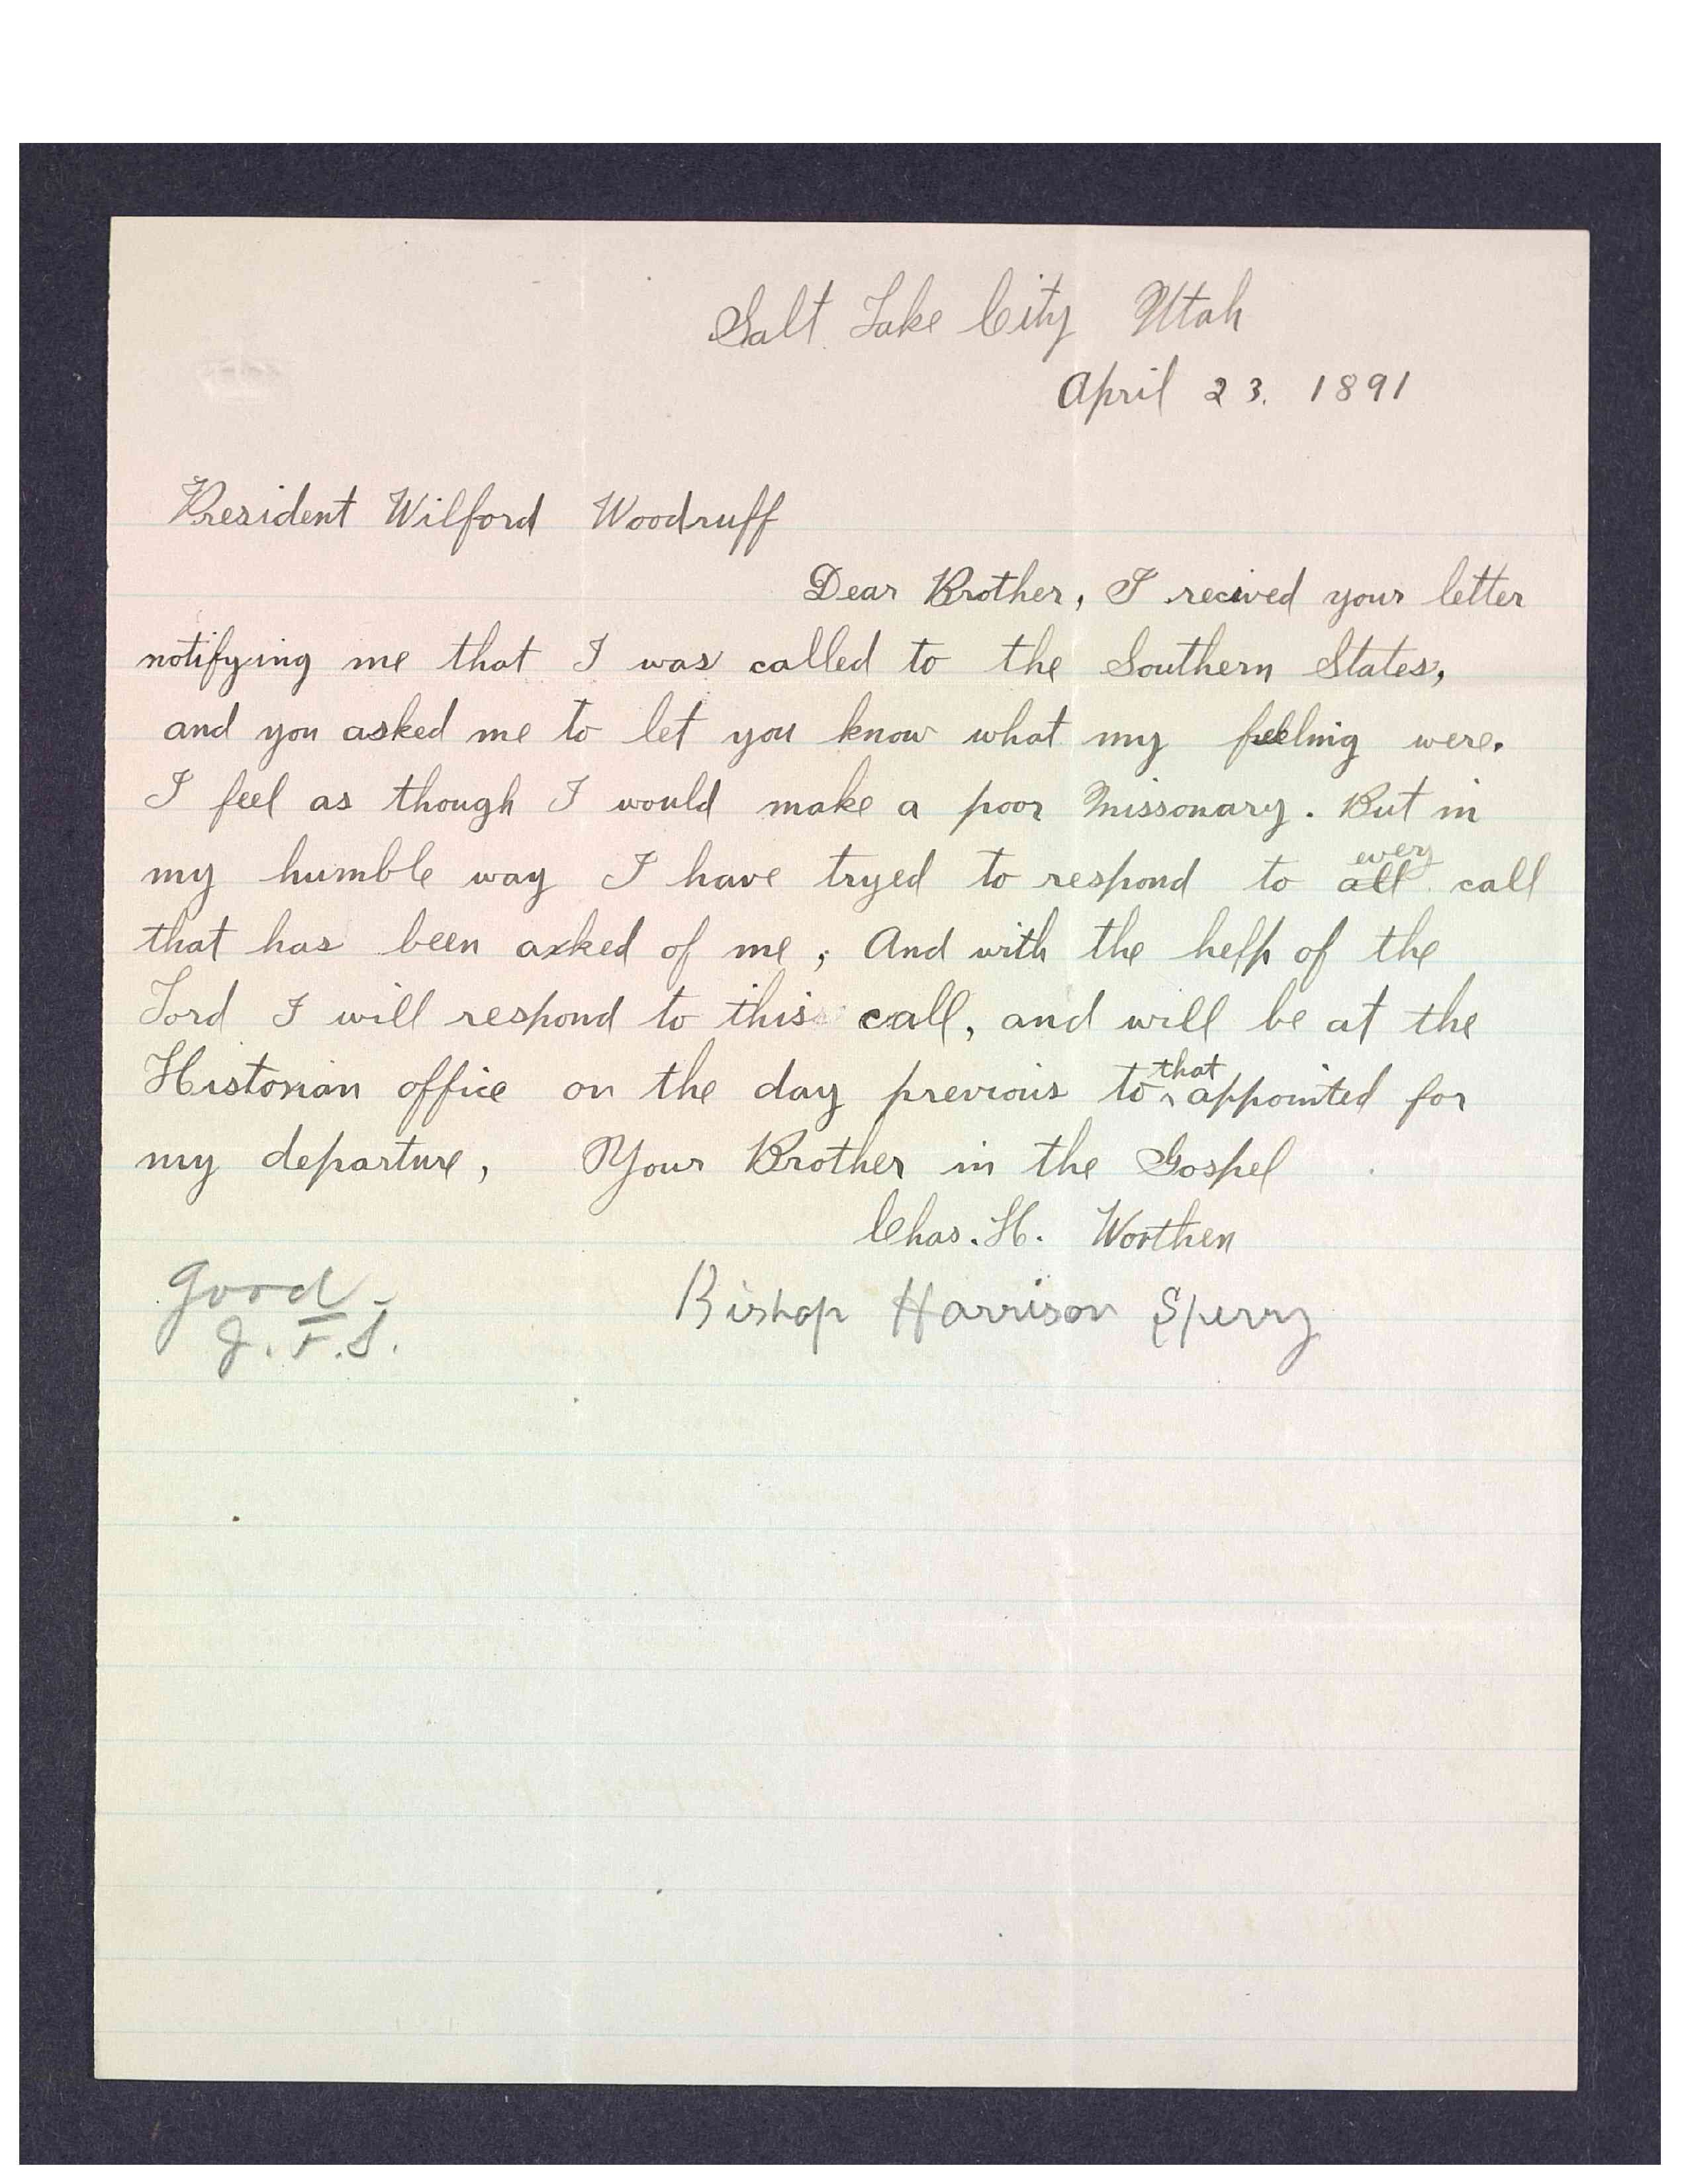 Salt Lake City Utah
April 23. 1891
President Wilford Woodruff
Dear Brother, I recived your letter
notifying me that I was called to the Southern States,
and you asked me to let you know what my feeling were.
I feel as though I would make a poor Missonary. But in
every
my humble way I have tryed to respond to all call
that has been asked of me; And with the help of the
Lord I will respond to this call, and will be at the
that
Historian office on the day previous to ^ appointed for
my departure, Your Brother in the Gospel
Chas. H. Worthen
Bishop Harrison Sperry
Good -
J. F. S.